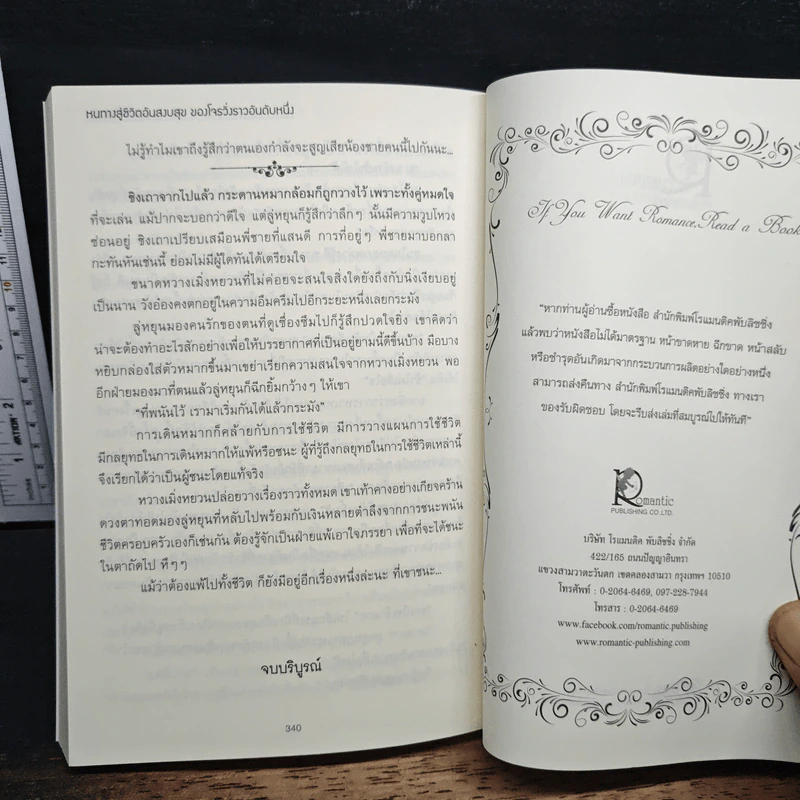 หนทางสู่ชีวิตอันสงบสุข ของโจรวิ่งราวอันดับหนึ่ง
ไม่รู้ทำไมเขาถึงรู้สึกว่าตนเองกำลังจะสูญเสียน้องชายคนนี้ไปกันนะ...
ชิงเถาจากไปแล้ว กระดานหมากล้อมก็ถูกวางไว้ เพราะทั้งคู่หมดใจ
ที่จะเล่น แม้ปากจะบอกว่าดีใจ แต่ลู่หยุนก็รู้สึกว่าลึกๆ นั้นมีความวูบโหวง
ซ่อนอยู่ ชิงเถาเปรียบเสมือนพี่ชายที่แสนดี การที่อยู่ๆ พี่ชายมาบอกลา
กะทันหันเช่นนี้ ย่อมไม่มีผู้ใดทันได้เตรียมใจ
ขนาดหวางเมิ่งหยวนที่ไม่ค่อยจะสนใจสิ่งใดยังถึงกับนิ่งเงียบอยู่
เป็นนาน วังอ๋องคงตกอยู่ในความอึมครึมไปอีกระยะหนึ่งเลยกระมัง
ลู่หยุนมองคนรักของตนที่ดูเซื่องซึมไปก็รู้สึกปวดใจยิ่ง เขาคิดว่า
น่าจะต้องทำอะไรสักอย่างเพื่อให้บรรยากาศที่เป็นอยู่ยามนี้ดีขึ้นบ้าง มือบาง
หยิบกล่องใส่ตัวหมากขึ้นมาเขย่าเรียกความสนใจจากหวางเมิ่งหยวน พอ
อีกฝ่ายมองมาที่ตนแล้วลู่หยุนก็ฉีกยิ้มกว้างๆ ให้เขา
“ที่พนันไว้ เรามาเริ่มกันได้แล้วกระมัง”
การเดินหมากก็คล้ายกับการใช้ชีวิต มีการวางแผนการใช้ชีวิต
มีกลยุทธในการเดินหมากให้แพ้หรือชนะ ผู้ที่รู้ถึงกลยุทธในการใช้ชีวิตเหล่านี้
จึงเรียกได้ว่าเป็นผู้ชนะโดยแท้จริง
หวางเมิ่งหยวนปล่อยวางเรื่องราวทั้งหมด เขาเท้าคางอย่างเกียจคร้าน
ดวงตาทอดมองลู่หยุนที่หลับไปพร้อมกับเงินหลายตำลึงจากการชนะพนัน
ชีวิตครอบครัวเองก็เช่นกัน ต้องรู้จักเป็นฝ่ายแพ้เอาใจภรรยา เพื่อที่จะได้ชนะ
ในตาถัดไป หึๆๆ
แม้ว่าต้องแพ้ไปทั้งชีวิต ก็ยังมีอยู่อีกเรื่องหนึ่งล่ะนะ ที่เขาชนะ...
จบบริบูรณ์
340
If You Want Romance, Read a Book
“หากท่านผู้อ่านซื้อหนังสือ สำนักพิมพ์โรแมนติคพับลิชชิ่ง
แล้วพบว่าหนังสือไม่ได้มาตรฐาน หน้าขาดหาย ฉีกขาด หน้าสลับ
หรือชำรุดอันเกิดมาจากกระบวนการผลิตอย่างใดอย่างหนึ่ง
สามารถส่งคืนทาง สำนักพิมพ์โรแมนติคพับลิชชิ่ง ทางเรา
ขอรับผิดชอบ โดยจะรีบส่งเล่มที่สมบูรณ์ไปให้ทันที”
Romantic
PUBLISHING CO.,LTD.
บริษัท โรแมนติค พับลิชชิ่ง จำกัด
422/165 ถนนปัญญาอินทรา
แขวงสามวาตะวันตก เขตคลองสามวา กรุงเทพฯ 10510
โทรศัพท์ : 0-2064-6469, 097-228-7944
โทรสาร : 0-2064-6469
www.facebook.com/romantic.publishing
www.romantic-publishing.com